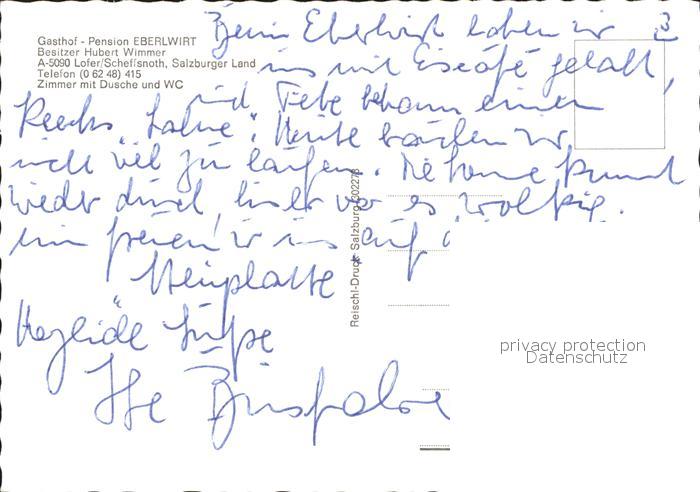 Gasthof - Pension EBERLWIRT
Besitzer Hubert Wimmer
A-5090 Lofer/Scheffsnoth, Salzburger Land
Telefon (0 62 48) 415
Zimmer mit Dusche und WC
Beim Eberlwirt haben wir
uns mit Eiscafé gelabt,
und bekam einen
Heute brauchen wir
nicht viel zu laufen. Die Sonne kommt
wieder durch, bisher war es wolkig.
nun freuen wir uns auf d
Steinplatte
Herzliche Grüße
Ilse
Reischl-Druck Salzburg
privacy protection
Datenschutz